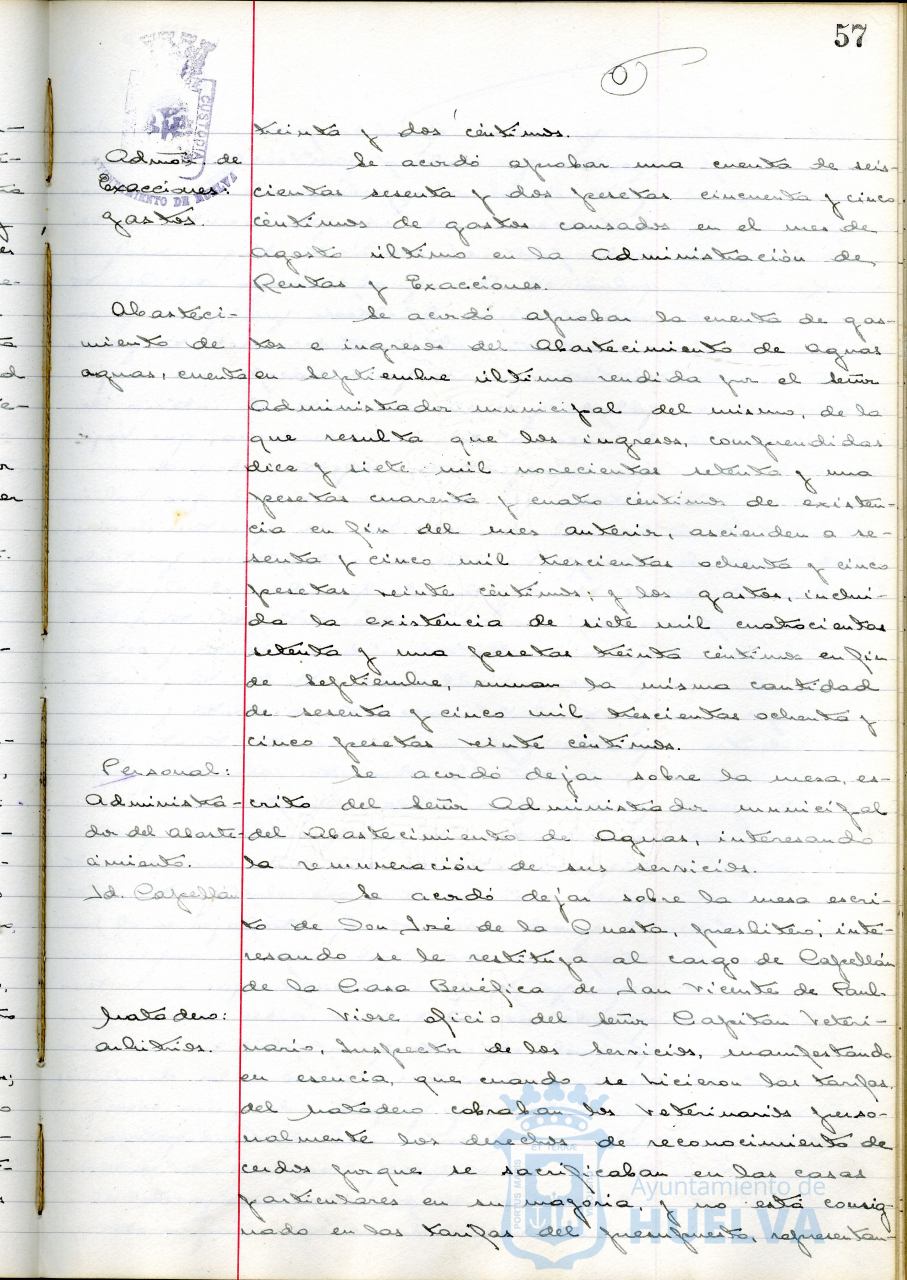 57
treinta y dos céntimos.
Admón. de
Exacciones:
gastos.
Se acordó aprobar una cuenta de seis-
cientas sesenta y dos pesetas cincuenta y cinco
céntimos de gastos causados en el mes de
agosto último en la Administración de
Rentas y Exacciones.
Abasteci-
miento de
aguas, cuenta
Se acordó aprobar la cuenta de gas-
tos e ingresos del Abastecimiento de Aguas
en Septiembre último rendida por el señor
Administrador municipal del mismo, de la
que resulta que los ingresos, comprendidas
diez y siete mil novecientas setenta y una
pesetas cuarenta y cuatro céntimos de existen-
cia en fin del mes anterior, ascienden a se-
senta y cinco mil trescientas ochenta y cinco
pesetas veinte céntimos; y los gastos, inclui-
da la existencia de siete mil cuatrocientas
setenta y una pesetas treinta céntimos en fin
de Septiembre, suman la misma cantidad
de sesenta y cinco mil trescientas ochenta y
cinco pesetas veinte céntimos.
Personal:
Administra-
dor del abaste-
cimiento.
Se acordó dejar sobre la mesa, es-
crito del Señor Administrador municipal
del Abastecimiento de Aguas, interesando
la remuneración de sus servicios.
Id. Capellán
Se acordó dejar sobre la mesa escri-
to de Don José de la Cuesta, presbítero, inte-
resando se le restituya al cargo de Capellán
de la Casa Benéfica de San Vicente de Paul.
Matadero:
arbitrios.
Viose oficio del Señor Capitán Veteri-
nario, Inspector de los Servicios, manifestando
en esencia, que cuando se hicieron las tarifas
del matadero cobraban los Veterinarios perso-
nalmente los derechos de reconocimiento de
cerdos porque se sacrificaban en las casas
particulares en su mayoría, y no está consig-
nado en las tarifas del presupuesto, representan-
CUSTODIA
AYUNTAMIENTO DE HUELVA
PORTUS MARIS
ET TERRAE
Ayuntamiento de
HUELVA